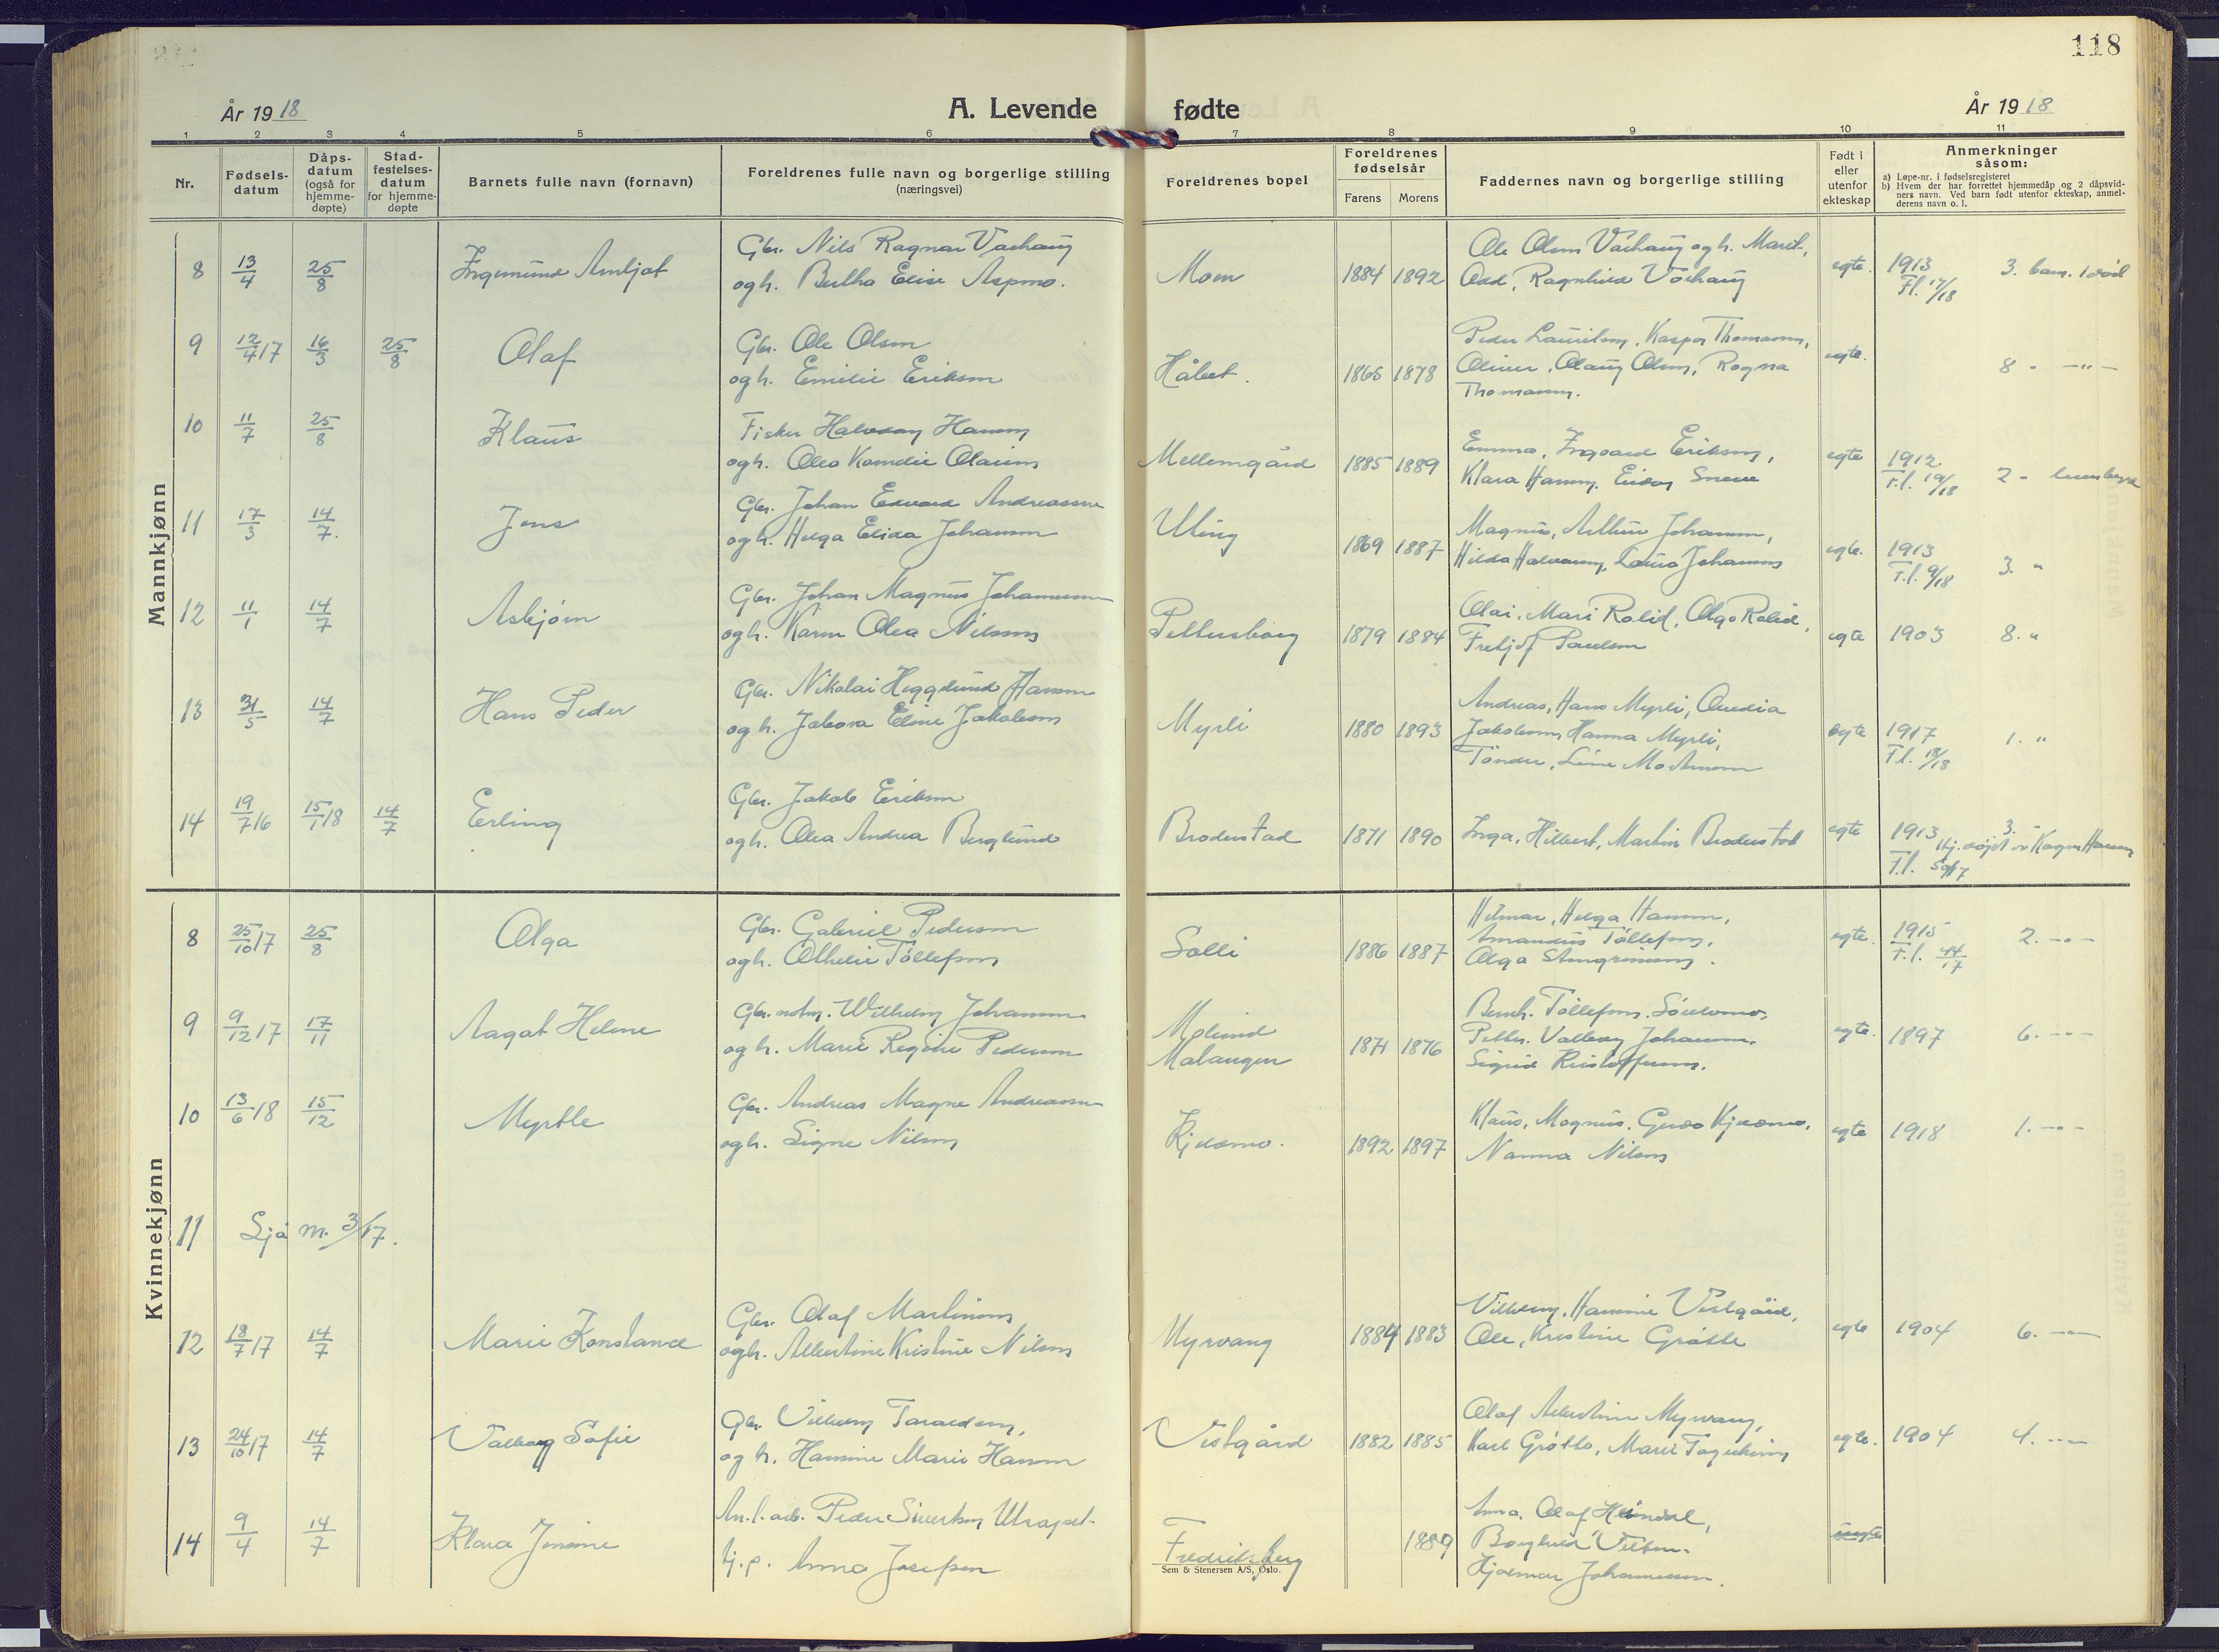 118
År 1918
A. Levende fødte
År 1918
1 2 3 4 5 6 7 8 9 10 11
Nr.
Fødsels-
datum
Dåps-
datum
(også for
hjemme-
døpte)
Stad-
festelses-
datum
for hjemme-
døpte
Barnets fulle navn (fornavn)
Foreldrenes fulle navn og borgerlige stilling
(næringsvei)
Foreldrenes bopel
Foreldrenes
fødselsår
Farens Morens
Faddernes navn og borgerlige stilling
Født i
eller
utenfor
ekteskap
Anmerkninger
såsom:
a) Løpe-nr. i fødselsregisteret
b) Hvem der har forrettet hjemmedåp og 2 dåpsvid-
ners navn. Ved barn født utenfor ekteskap, anmel-
derens navn o. l.
Mannkjønn
8 13/4 25/8 Ingemund Arnljot
Gbr. Nils Ragnar Vårhaug
og h. Bertha Elise Aspmo.
Moen 1884 1892
Ole Olsen Vårhaug og h. Marit,
Odd, Ragnhild Vårhaug
egte. 1913 3. barn. 1 død
Fl. 17/18
9 12/4 17 16/3 25/8 Olaf
Gbr. Ole Olsen
og h. Emilie Eriksen
Håbet. 1865 1878
Peder Lauritsen, Kaspar Thomassen,
Oliver, Olaug Olsen, Ragna
Thomassen.
egte. 8 - -"-
10 11/7 25/8 Klaus
Fisker Halvdan Hansen
og h. Olea Kornelie Olaisen
Mellemgård 1885 1889
Emma, Ingvard Eriksen,
Klara Hansen,
egte 1912 2 -
F.l. 19/18
11 17/3 14/7. Jens
Gbr. Johan Edvard Andreassen
og h. Helga Elida Johansen
Uteng 1869 1887
Magnus, Arthur Johansen,
Hilda Halvorsen, Laura Johansen
egte. 1913 3. "
F.l. 9/18
12 11/1 14/7 Asbjørn
Gbr. Johan Magnus Johannessen
og h. Karen Olea Nilsen
Pettersborg 1879 1884
Olai, Mari Rolid, Olga Rolid,
Fretjof Paulsen
egte 1903 8. "
13 31/5 14/7 Hans Peder
Gbr. Nikolai Heggelund Hansen
og h. Jakova Eline Jakobsen
Myrli 1880 1893
Andreas, Hans Myrli,
Jakobsen, Hanna Myrli,
Tønder, Line Mortensen
egte 1917 1. "
F.l. 18/18
14 19/7 16 15/1 18 14/7 Erling
Gbr. Jakob Eriksen
og h. Olea Andrea Berglund
Broderstad 1871 1890
Inga, Hilbert, Martin Broderstad
egte 1913 3. -
Hj. døpt v. Hansen
F.l. 50/17
Kvinnekjønn
8 25/10 17 25/8 Olga
Gbr. Gabriel Pedersen
og h. Othelie Tollefsen
Solli 1886 1887
Hilmar, Helga Hansen,
Amandus Tollefsen,
Olga Steingrimsen.
egte. 1915 2. -"-
F.l. 44/17
9 9/12 17 17/11 Aagot Helene
Gbr. Wilhelm Johansen
og h. Marie Regine Pedersen
Molund
Malangen 1871 1876
Bernh. Tollefsen,
Petter, Valborg Johansen,
Sigrid Kristoffersen.
egte. 1897 6. -"-
10 13/6 18 15/12 Myrtle
Gbr. Andreas Magne Andreassen
og h. Signe Nilsen
Kjosmo. 1892 1897
Klaus, Magnus, Kjosmo,
Nanna Nilsen
egte 1918 1. -"-
11 Sjå m. 3/17.
12 18/7 17 14/7 Marie Konstance
Gbr. Olaf Martinsen
og h. Albertine Kristine Nilsen
Myrvang 1884 1883
Vilhelm, Hansine Vestgård,
Ole, Kristine Grøtte
egte 1904 6. -"-
13 24/10 17 14/7 Valborg Sofie
Gbr. Vilhelm Taraldsen,
og h. Hansine Marie Hansen
Vestgård 1882 1885
Olaf Albertine Myrvang,
Karl Grøtte, Marie
egte. 1904 4. -"-
14 9/4 14/7 Klara Jensine
An. l. arb. Peder Sivertsen
tj.p. Anna Josefsen
Fredriksberg 1889
Anna, Olaf Heimdal,
Borghild
Hjalmar Johannessen.
Sem & Stenersen A/S, Oslo.